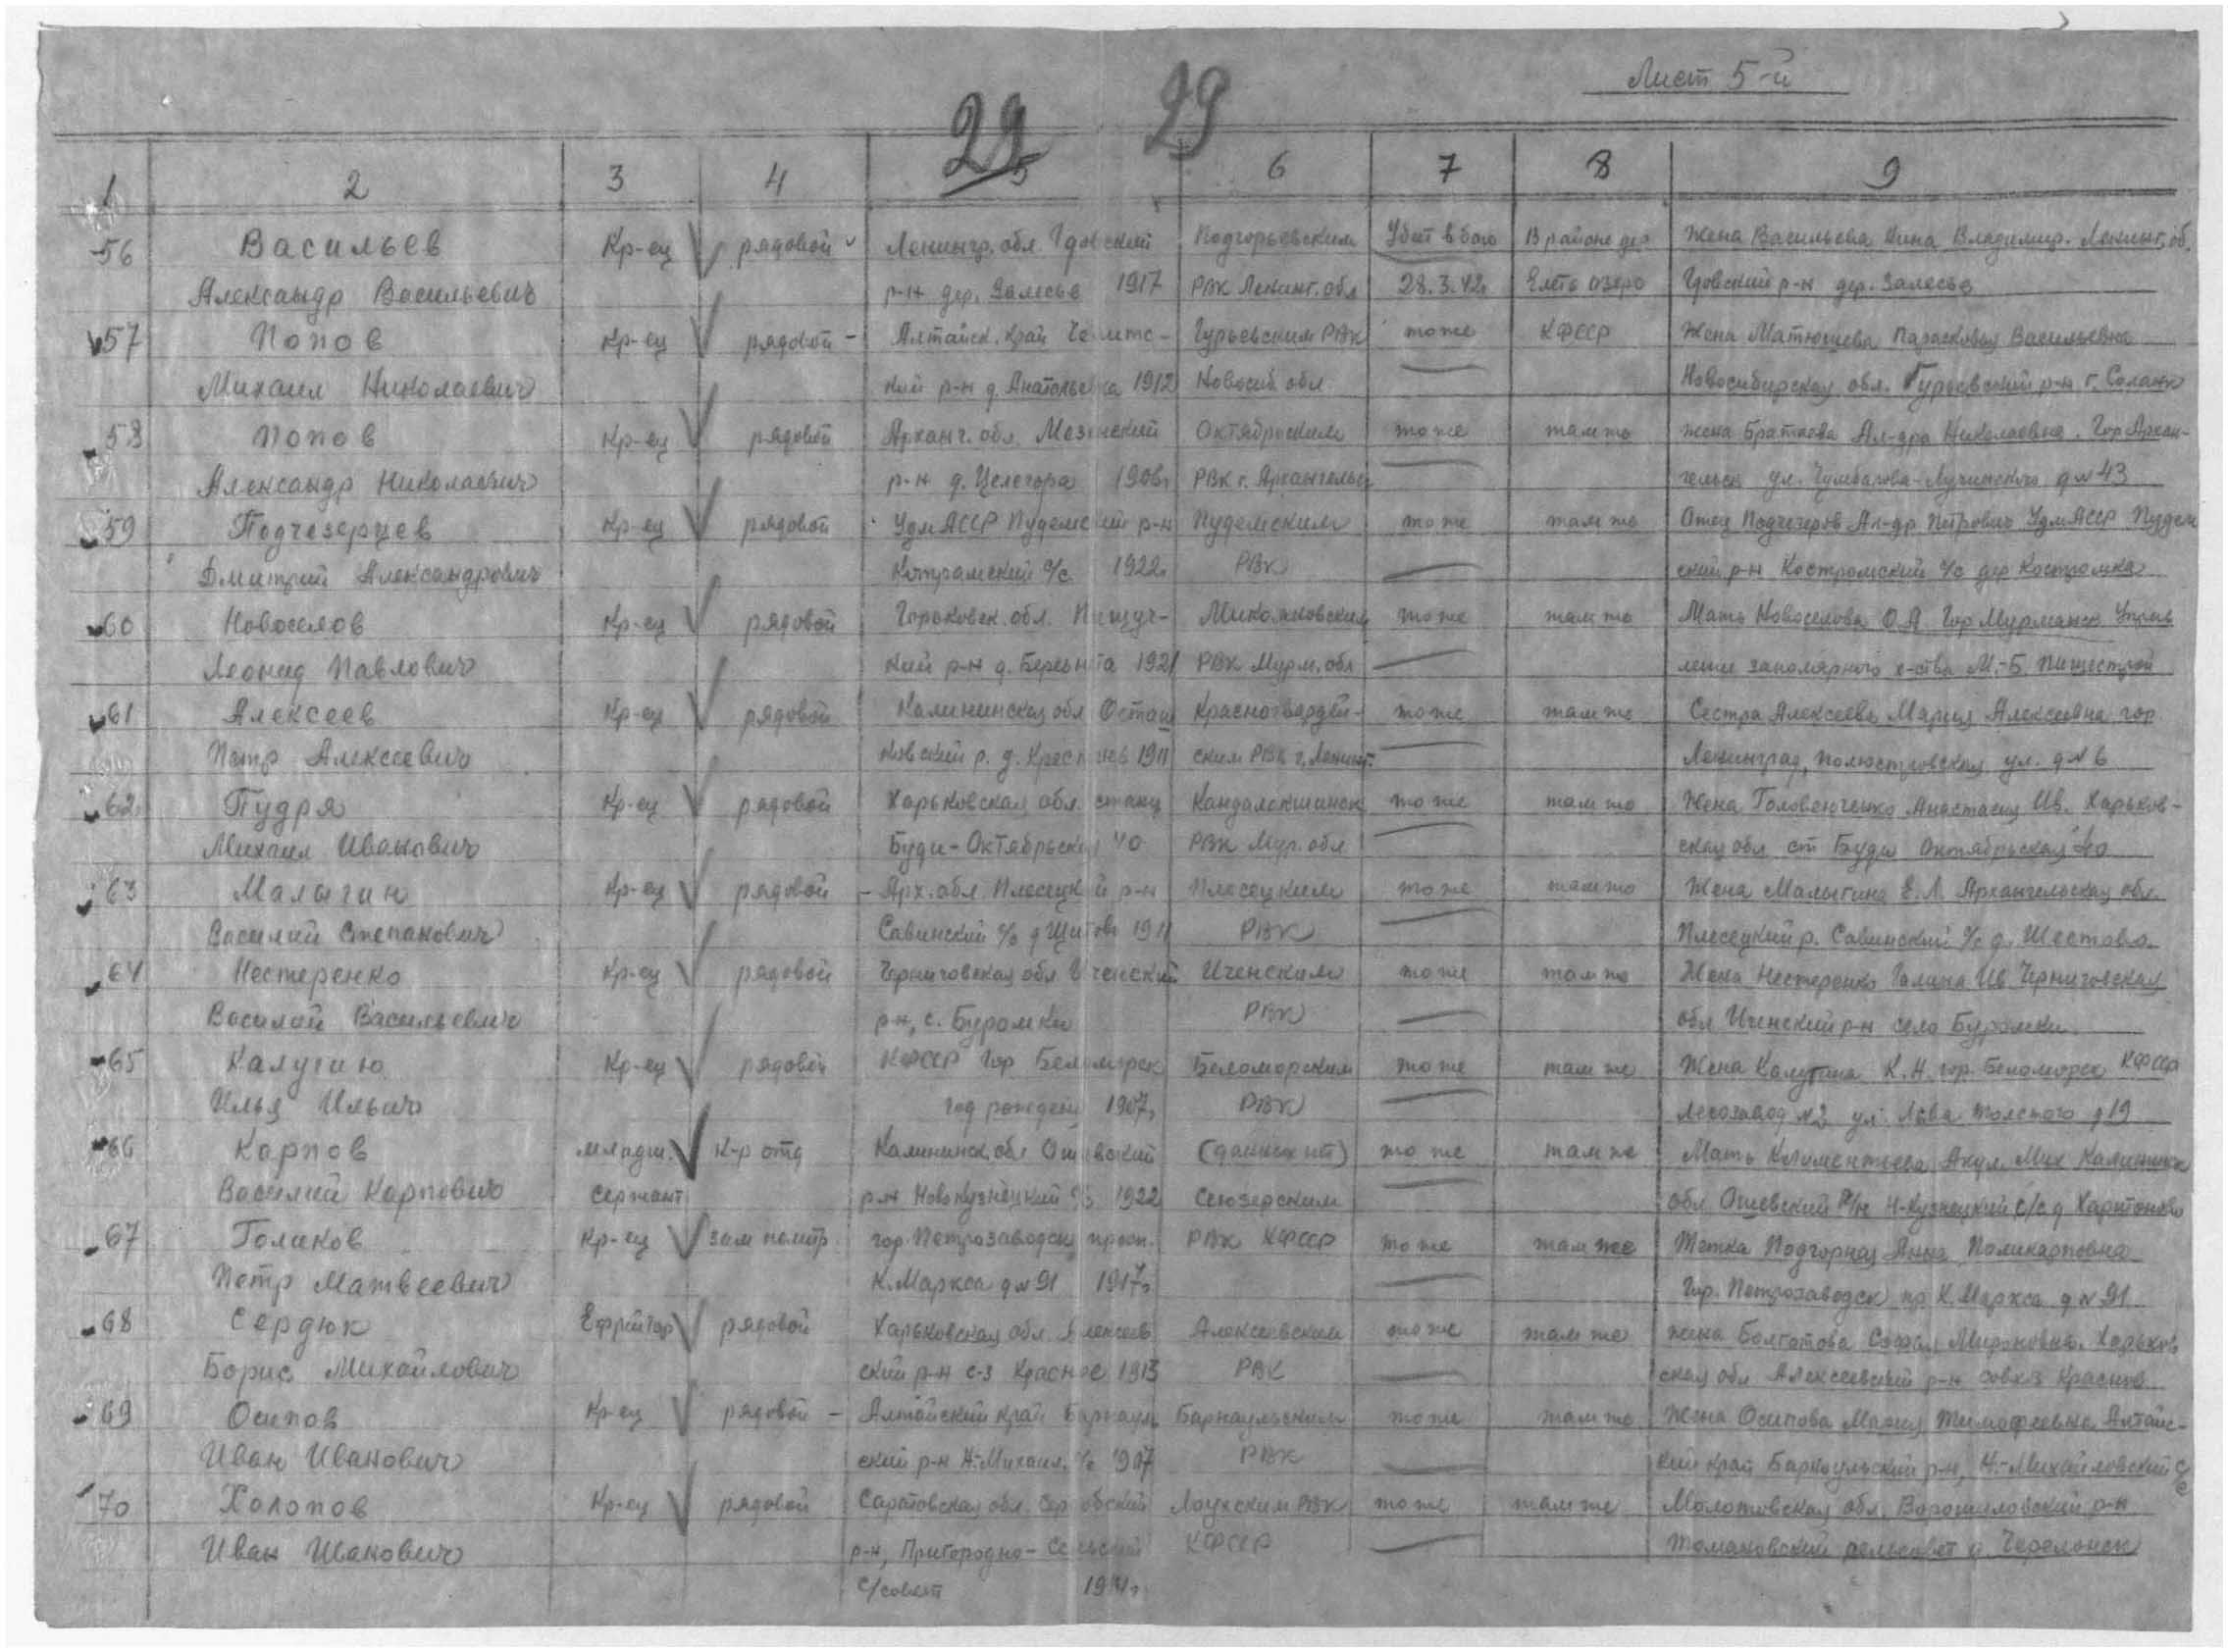 Лист 5-й
29 29
1 2 3 4 5 6 7 8 9
56 Васильев Кр-ец рядовой Ленингр. обл. Гдовский Подгорьевским Убит в бою В районе дер Жена Васильева Нина Владимир. Ленинг. об.
Александр Васильевич р-н дер. Залесье 1917 РВК Ленинг. обл 28.3.42г Елеть озеро Гдовский р-н дер. Залесье
57 Попов Кр-ец рядовой - Алтайск. край Гурьевским РВК то же КФССР Жена Матюшева Парасковья Васильевна
Михаил Николаевич кий р-н д. Анатольевка 1912 Новосиб. обл. Новосибирская обл. Гурьевский р-н г. Салаир
58 Попов Кр-ец рядовой Арханг. обл. Мезенский Октябрьским то же там же жена Братаева Ал-дра Николаевна. Гор Архан-
Александр Николаевич р-н д. Целегора 1908г РВК г. Архангельск гельск ул. Чумбарова-Лучинского д № 43
59 Подчезерцев Кр-ец рядовой УдмАССР Пудемский р-н Пудемским то же там же Отец Подчезеров Ал-др Петрович УдмАССР Пудем
Дмитрий Александрович с/с 1922г РВК ский р-н Костромский с/с дер Костромка
60 Новоселов Кр-ец рядовой Горьковск. обл. то же там же Мать Новоселова О.А. Гор Мурманск Управ
Леонид Павлович кий р-н д. 1921 РВК Мурм. обл ление заполярного х-ства М.-Б.
61 Алексеев Кр-ец рядовой Калининская обл Осташ Красногвардей- то же там же Сестра Алексеева Мария Алексеевна гор.
Петр Алексеевич ковский р. д. 1911 ским РВК г. Ленинг. Ленинград, Полюстровская ул. д № 6
62 Пудря Кр-ец рядовой Харьковская обл. станц Кандалакшинск то же там же Жена Головенченко Анастасия Ив. Харьков-
Михаил Иванович Буды-Октябрьская 40 РВК Мур. обл ская обл ст Буды Октябрьская 40
63 Малыгин Кр-ец рядовой - Арх. обл. Плесецкий р-н Плесецким то же там же Жена Малыгина Е.Л. Архангельская обл.
Василий Степанович Савинский с/с д 1911 РВК Плесецкий р. Савинский с/с д. Шестово.
64 Нестеренко Кр-ец рядовой Черниговская обл Иченский Иченским то же там же Жена Нестеренко Галина Ив Черниговская
Василий Васильевич р-н, с. Буромки РВК обл Иченский р-н село Буромки
65 Калугин Кр-ец рядовой КФССР Гор Беломорск Беломорским то же там же Жена Калугина К.Н. гор. Беломорск КФССР
Илья Ильич год рожден 1907г РВК Лесозавод №2 ул. Льва Толстого д 19
66 Карпов младш. К-р отд Калининск. обл Ошевский (данных нет) то же там же Мать Клементьева Акул. Мих Калининск
Василий Карпович сержант р-н Новокузнецкий с/с 1922 Сегозерским обл. Ошевский р/н Н-Кузнецкий с/с д Харитоново
67 Голиков Кр-ец зам политр. гор. Петрозаводск просп. РВК КФССР то же там же Тетка Подгорная Анна Поликарповна
Петр Матвеевич К. Маркса д № 91 1917г Гор. Петрозаводск пр К. Маркса д № 91
68 Сердюк Ефрейтор рядовой Харьковская обл. Алексеев Алексеевским то же там же жена Болготова Софья Мироновна. Харьков
Борис Михайлович ский р-н с-з Красное 1913 РВК ская обл Алексеевский р-н совхоз Красное
69 Осипов Кр-ец рядовой - Алтайский край Барнауль Барнаульским то же там же Жена Осипова Мария Тимофеевна Алтайс-
Иван Иванович ский р-н Н.-Михаил. с/с 1907 РВК кий край Барнаульский р-н, Н.-Михайловский с/с
70 Холопов Кр-ец рядовой Саратовская обл. Сердобский Лоухским РВК то же там же Молотовская обл. Ворошиловский р-н
Иван Иванович р-н, Пригородно-Сельский КФССР сельсовет
с/совет